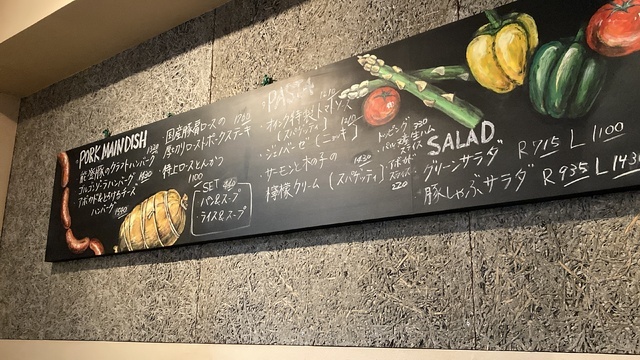 PORK MAIN DISH
能登豚のクラフトハンバーグ
ゴルゴンゾーラハンバーグ 1430
アボカド&とろけるチーズ
ハンバーグ
国産豚肩ロースの 1760
厚切りローストポークステーキ
特上ロースとんかつ
SET
パン&スープ
ライス&スープ
PASTA
オイック特製 トボソース
(スパゲッティ)
ジェノベーゼ (ニョッキ)
サーモンと木の子の 1430
檸檬クリーム (スパゲッティ)
トッピング
パルマ産生ハム
スライス
アボカド
スライス
220
SALAD
グリーンサラダ R 715 L 1100
豚しゃぶサラダ R 935 L 1430